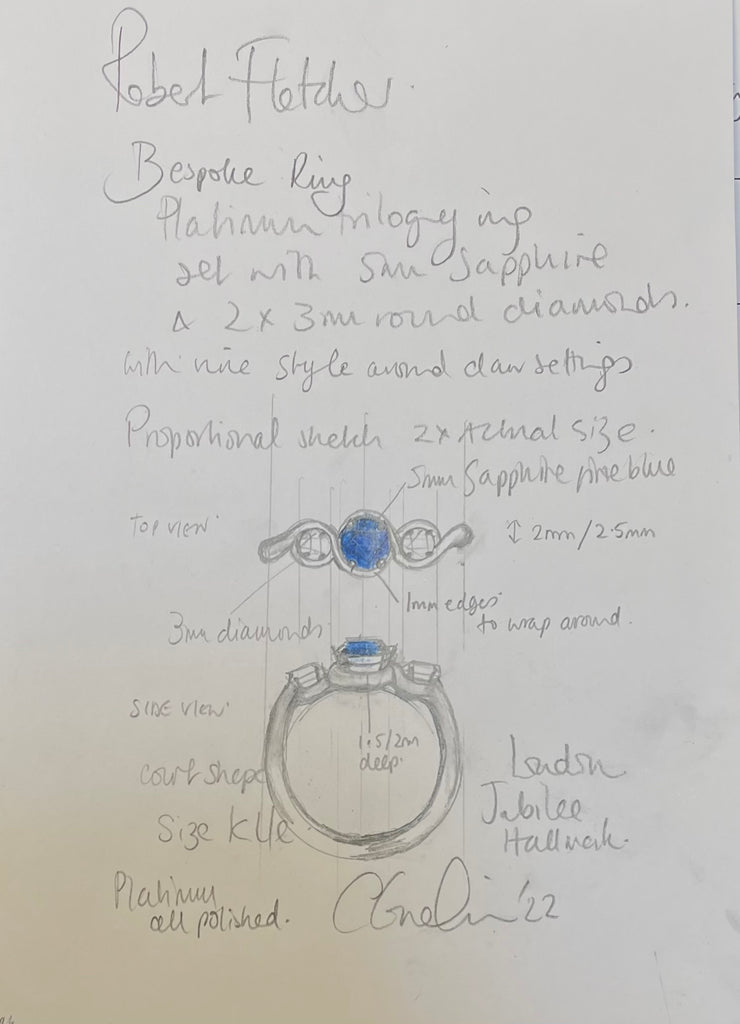 Robert Fletcher.
Bespoke Ring
Platinum trilogy ring
set with 5mm Sapphire
& 2 x 3mm round diamonds.
with vine style around claw settings
Proportional sketch 2x Actual size.
5mm Sapphire fine blue
TOP VIEW
2mm/2.5mm
1mm edges
to wrap around.
3mm diamonds
SIDE VIEW
1.5/2m
deep.
court shape
Size K
London
Jubilee
Hallmark.
Platinum
all polished.
'22